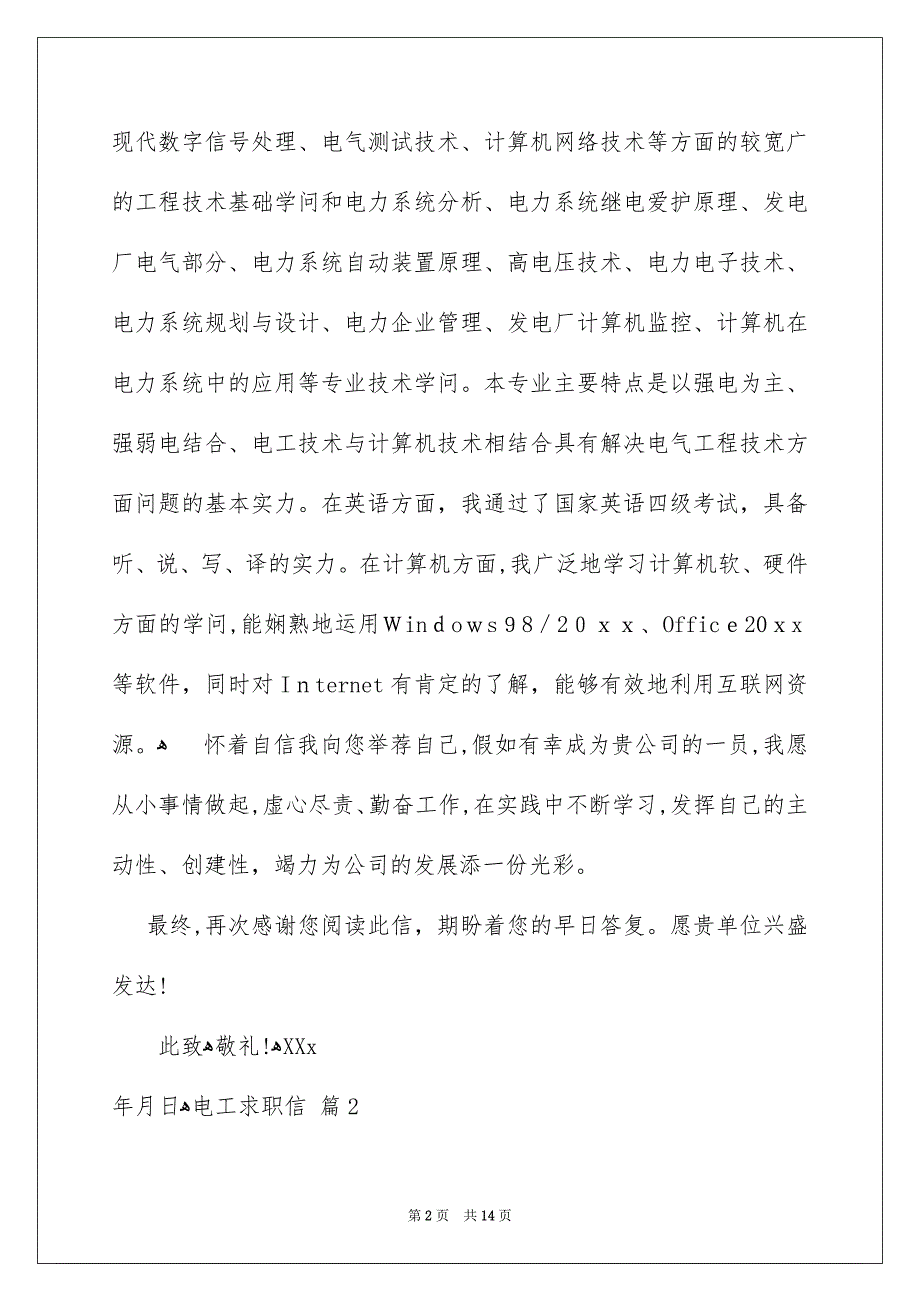 现代数字信号处理、电气测试技术、计算机网络技术等方面的较宽广
的工程技术基础学问和电力系统分析、电力系统继电爱护原理、发电
厂电气部分、电力系统自动装置原理、高电压技术、电力电子技术、
电力系统规划与设计、电力企业管理、发电厂计算机监控、计算机在
电力系统中的应用等专业技术学问。本专业主要特点是以强电为主、
强弱电结合、电工技术与计算机技术相结合具有解决电气工程技术方
面问题的基本实力。在英语方面，我通过了国家英语四级考试，具备
听、说、写、译的实力。在计算机方面,我广泛地学习计算机软、硬件
方面的学问,能娴熟地运用Windows98/20ｘｘ、Office20xx
等软件，同时对Internet有肯定的了解，能够有效地利用互联网资
源。ﻫ 怀着自信我向您举荐自己,假如有幸成为贵公司的一员,我愿
从小事情做起,虚心尽责、勤奋工作,在实践中不断学习,发挥自己的主
动性、创建性，竭力为公司的发展添一份光彩。
最终,再次感谢您阅读此信，期盼着您的早日答复。愿贵单位兴盛
发达!
此致ﻫ敬礼!ﻫXXx
年月日ﻫ电工求职信 篇2
第2页 共14页